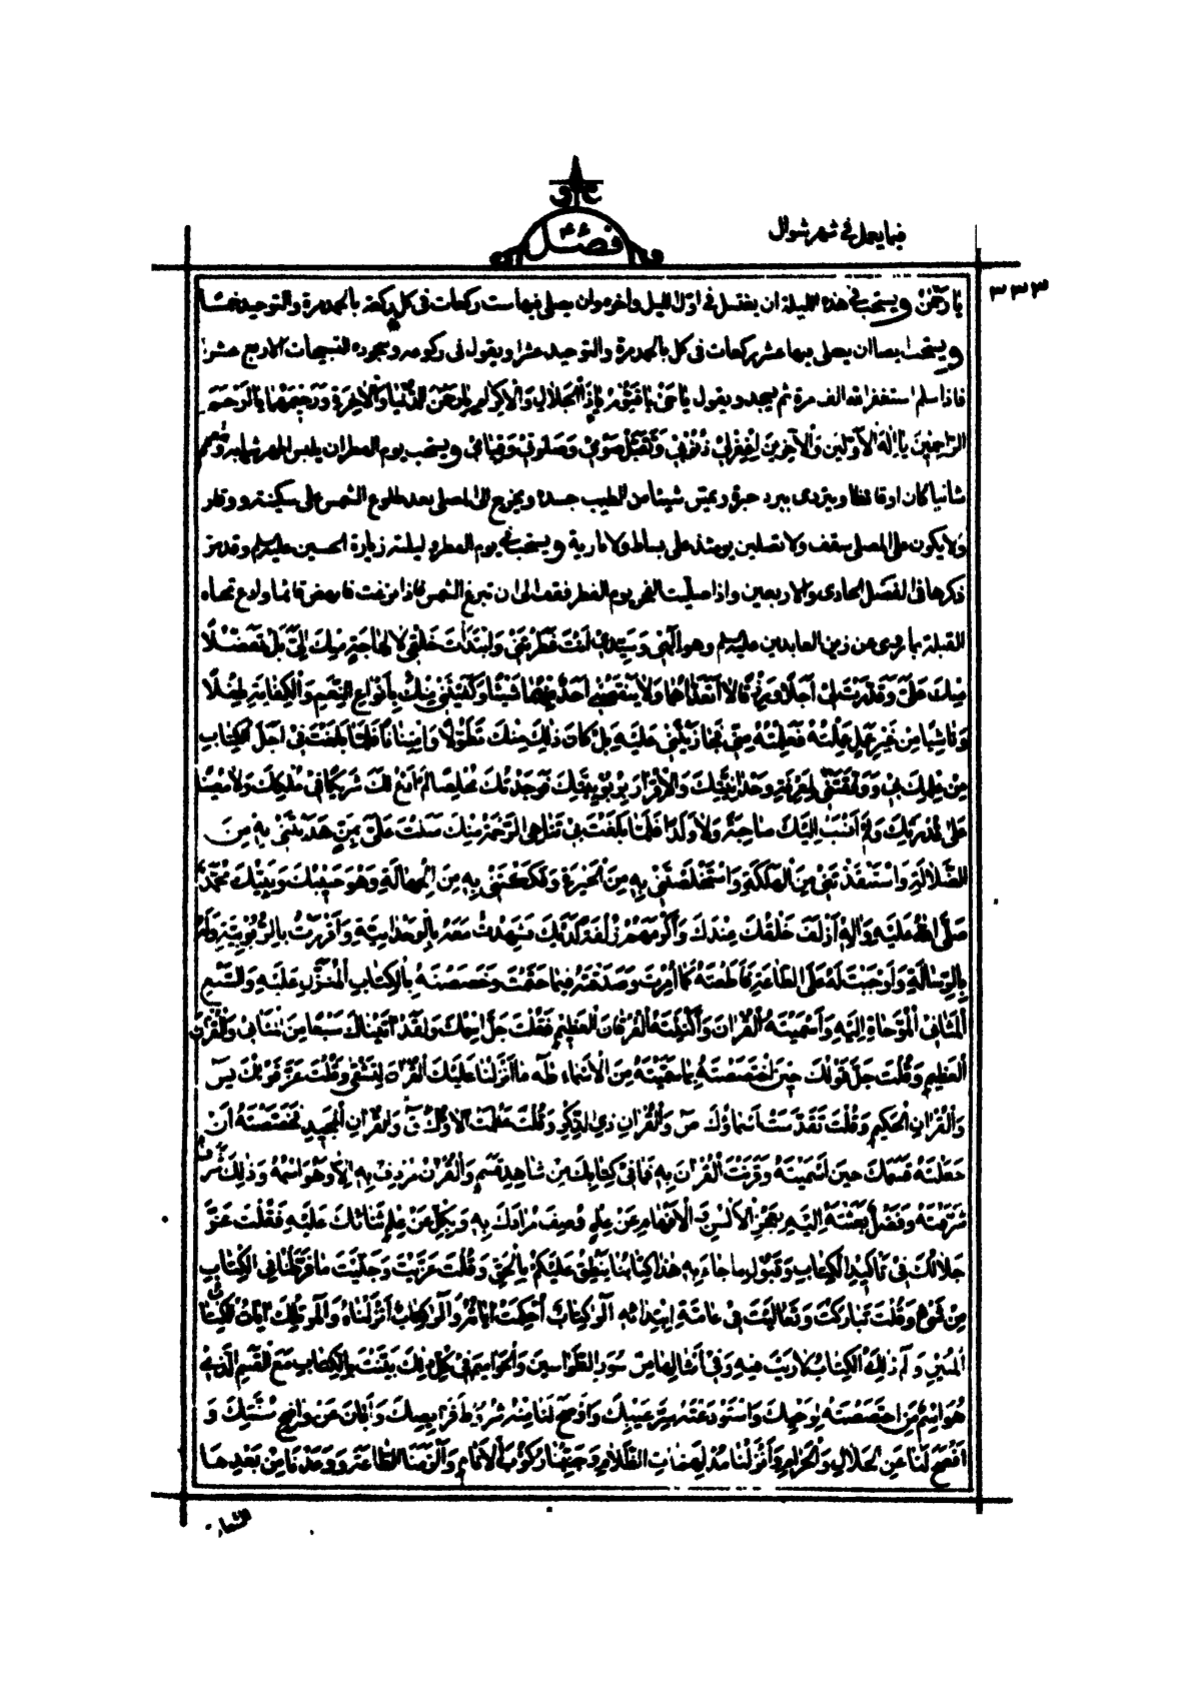 فيما يعمل في شهر شوال
فصل ٤٦
٣٣٣
يا رحمن ويستحب في هذه الليلة ان يغتسل في اول الليل واخره وان يصلي فيها ست ركعات في كل ركعة بالحمد مرة والتوحيد خمسا
ويستحب ايضا ان يصلى فيها عشر ركعات فى كل بالحمد مرة والتوحيد عشرا ويقول فى ركوعه وسجوده التسبيحات الاربع عشرا
فاذا سلم استغفر الله الف مرة ثم يسجد ويقول يا حَىُّ يا قَيُّومُ يا ذَا الْجَلالِ وَالْاِكْرامِ يا رَحْمنَ الدُّنْيا وَالْاخِرَةِ وَرَحِيمَهُما يا اَرْحَمَ
الرّاحِمينَ يا اِلهَ الْاَوَّلينَ وَالْاخِرينَ اِغْفِرْلي ذُنُوبي وَتَقَبَّلْ صَوْمي وَصَلوتي وَقِيامي ويستحب يوم الفطر ان يلبس اطهر ثيابه ويتعمم
شاتيا كان او قائظا ويتردى ببرد حبرة ويمس شيئا من الطيب جسده ويخرج الى المصلى بعد طلوع الشمس على سكينة ووقار
ولا يكون على المصلى سقف ولا تصلين يومئذ على بساط ولا بارية ويستحب في يوم الفطر وليلته زيارة الحسين عليه السلم وقد مر
ذكرها فى الفصل الحادى والاربعين واذا صليت الفجر يوم الفطر فقف الى ان تبزغ الشمس فاذا بزغت فانهض قائما وادع تجاه
القبلة بما روى عن زين العابدين عليه السلم وهو اِلهي وَسَيِّدي اَنْتَ فَطَرْتَني وَابْتَدَاْتَ خَلْقي لا لِحاجَةٍ مِنْكَ اِلَيَّ بَلْ تَفَضُّلًا
مِنْكَ عَلَيَّ وَقَدَّرْتَ لي اَجَلًا وَرِزْقًا لا اَتَعَدّاهُما وَلا يَنْقُصُني اَحَدٌ مِنْهُما شَيْئًا وَكَنَفْتَني مِنْكَ بِاَنْواعِ النِّعَمِ وَالْكِفايَةِ طِفْلًا
وَناشِئًا مِنْ غَيْرِ عَمَلٍ عَمِلْتُهُ فَعَلِمْتَهُ مِنّي فَجازَيْتَني عَلَيْهِ بَلْ كانَ ذلِكَ مِنْكَ تَطَوُّلًا وَامْتِنانًا فَلَمّا بَلَغْتَ بي اَجَلَ الْكِتابِ
مِنْ عِلْمِكَ بي وَوَفَّقْتَني لِمَعْرِفَةِ وَحْدانِيَّتِكَ وَالْاِقْرارِ بِرُبُوبِيَّتِكَ فَوَحَّدْتُكَ مُخْلِصًا لَمْ اَدْعُ لَكَ شَريكًا في مُلْكِكَ وَلا مُعينًا
عَلى قُدْرَتِكَ وَلَمْ اَنْسُبْ اِلَيْكَ صاحِبَةً وَلا وَلَدًا فَلَمّا بَلَغْتَ بي تَناهِىَ الرَّحْمَةِ مِنْكَ مَنَنْتَ عَلَيَّ بِمَنْ هَدَيْتَني بِهِ مِنَ
الضَّلالَةِ وَاسْتَنْقَذْتَني مِنَ الْهَلَكَةِ وَاسْتَخْلَصْتَني بِهِ مِنَ الْحَيْرَةِ وَفَكَكْتَني بِهِ مِنَ الْجَهالَةِ وَهُوَ حَبيبُكَ وَنَبِيُّكَ مُحَمَّدٌ
صَلَّى اللهُ عَلَيْهِ وَالِهِ اَزْلَفُ خَلْقِكَ عِنْدَكَ وَاَكْرَمُهُمْ مَنْزِلَةً لَدَيْكَ فَشَهِدْتُ مَعَهُ بِالْوَحْدانِيَّةِ وَاَقْرَرْتُ بِالرُّبُوبِيَّةِ وَلَهُ
بِالرِّسالَةِ وَاَوْجَبْتَ لَهُ عَلَيَّ الطّاعَةَ فَاَطَعْتُهُ كَما اَمَرْتَ وَصَدَّقْتُهُ فيما حَتَمْتَ وَخَصَصْتَهُ بِالْكِتابِ الْمُنْزَلِ عَلَيْهِ وَالسَّبْعِ
الْمَثاني الْمُوحاةِ اِلَيْهِ وَاَسْمَيْتَهُ الْقُرْانَ وَاَكْنَيْتَهُ الْفُرْقانَ الْعَظيمَ فَقُلْتَ جَلَّ اسْمُكَ وَلَقَدْ اتَيْناكَ سَبْعًا مِنَ الْمَثاني وَالْقُرْانَ
الْعَظيمَ وَقُلْتَ جَلَّ قَوْلُكَ حينَ اخْتَصَصْتَهُ بِما سَمَّيْتَهُ مِنَ الْاَسْماءِ طه ما اَنْزَلْنا عَلَيْكَ الْقُرْانَ لِتَشْقى وَقُلْتَ عَزَّ قَوْلُكَ يس
وَالْقُرْانِ الْحَكيمِ وَقُلْتَ تَقَدَّسَتْ اَسْماؤُكَ ص وَالْقُرْانِ ذِي الذِّكْرِ وَقُلْتَ عَظُمَتْ الاؤُكَ ق وَالْقُرْانِ الْمَجيدِ فَخَصَصْتَهُ اَنْ
جَعَلْتَهُ قَسَمَكَ حينَ اَسْمَيْتَهُ وَقَرَنْتَ الْقُرْانَ بِهِ فَما في كِتابِكَ مِنْ شاهِدِ قَسَمٍ وَالْقُرْانُ مُرْدَفٌ بِهِ اِلّا وَهُوَ اسْمُهُ وَذلِكَ شَرَفٌ
شَرَّفْتَهُ وَفَضْلٌ بَعَثْتَهُ اِلَيْهِ تَعْجِزُ الْاَلْسُنُ وَالْاَفْهامُ عَنْ عِلْمِ وَصْفِ مُرادِكَ بِهِ وَتَكِلُّ عَنْ عِلْمِ ثَنائِكَ عَلَيْهِ فَقُلْتَ عَزَّ
جَلالُكَ في تَاْكيدِ الْكِتابِ وَقَبُولِ ما جاءَ بِهِ هذا كِتابُنا يَنْطِقُ عَلَيْكُمْ بِالْحَقِّ وَقُلْتَ عَزَّيْتَ وَجَلَّيْتَ ما فَرَّطْنا فِي الْكِتابِ
مِنْ شَيْءٍ وَقُلْتَ تَبارَكْتَ وَتَعالَيْتَ في عامَّةِ ابْتِدائِهِ الر كِتابٌ اُحْكِمَتْ اياتُهُ وَالر كِتابٌ اَنْزَلْناهُ وَالر تِلْكَ اياتُ الْكِتابِ
الْمُبينِ وَ الم ذلِكَ الْكِتابُ لا رَيْبَ فيهِ وَفي اَمْثالِها مِنْ سُوَرِ الطَّواسينِ وَالْحَواميمِ في كُلِّ ذلِكَ بَيَّنْتَ بِالْكِتابِ مَعَ الْقَسَمِ الَّذي
هُوَ اسْمُ مَنِ اخْتَصَصْتَهُ لِوَحْيِكَ وَاسْتَوْدَعْتَهُ سِرَّ غَيْبِكَ وَاَوْضَحَ لَنا مِنْهُ شُرُوطَ فَرائِضِكَ وَاَبانَ عَنْ واضِحِ سُنَّتِكَ وَ
اَفْصَحَ لَنا عَنِ الْحَلالِ وَالْحَرامِ وَاَنارَ لَنا مُدْلَهِمّاتِ الظَّلامِ وَجَنَّبَنا رُكُوبَ الْاثامِ وَاَلْزَمَنَا الطّاعَةَ وَوَعَدَنا مِنْ بَعْدِها
الشفاعة